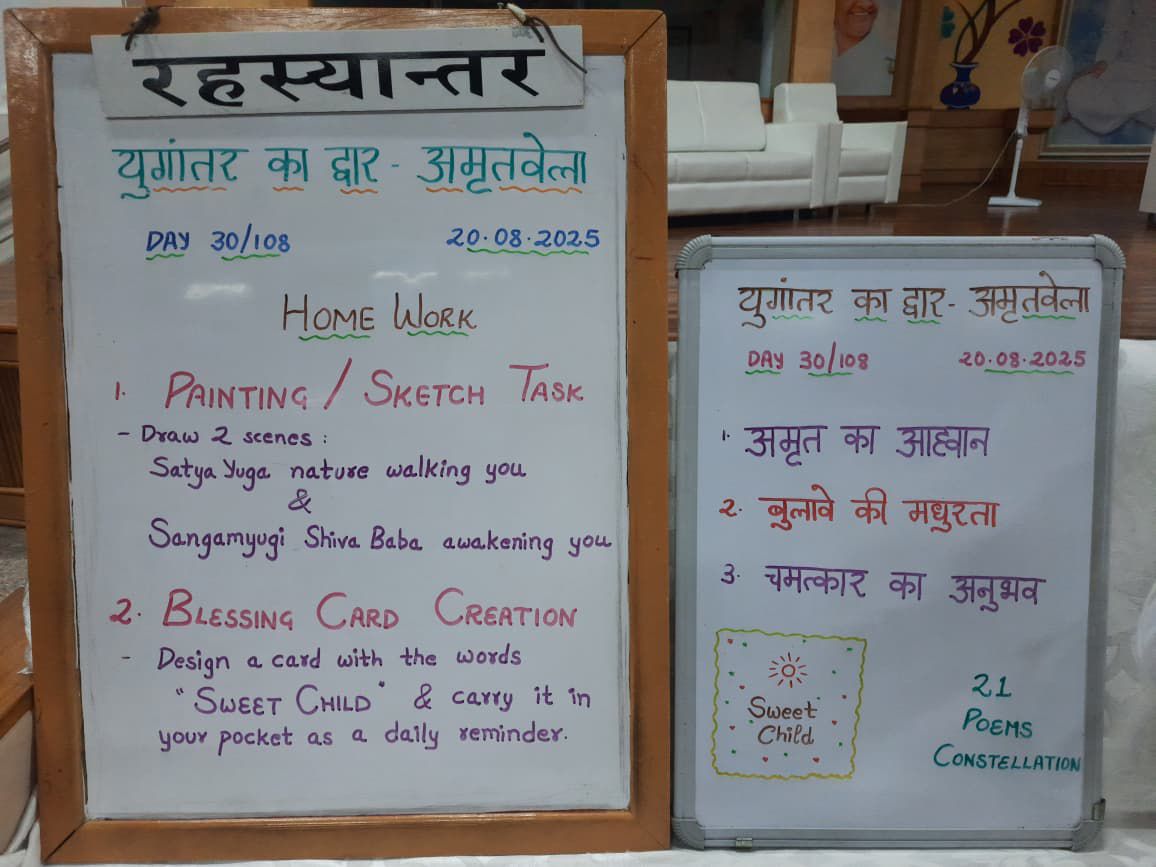 रहस्यान्तर
युगांतर का द्वार - अमृतवेला
DAY 30/108 20.08.2025
HOME WORK
1. PAINTING / SKETCH TASK
- Draw 2 scenes :
Satya Yuga nature walking you
&
Sangamyugi Shiva Baba awakening you
2. BLESSING CARD CREATION
- Design a card with the words
"SWEET CHILD" & carry it in
your pocket as a daily reminder.
युगांतर का द्वार - अमृतवेला
DAY 30/108 20.08.2025
1. अमृत का आह्वान
2. बुलावे की मधुरता
3. चमत्कार का अनुभव
Sweet
Child
21
POEMS
CONSTELLATION